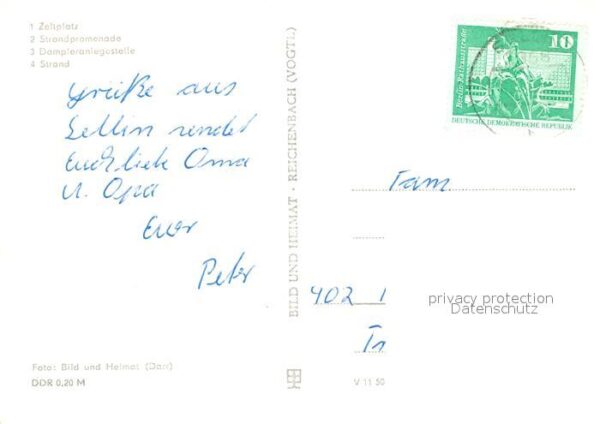 1 Zeltplatz
2 Strandpromenade
3 Dampferanlegestelle
4 Strand
Grüße aus
Sellin sendet
Euch liebe Oma
u. Opa
Euer
Peter
Foto: Bild und Heimat (Darr)
DDR 0,20 M
BILD UND HEIMAT · REICHENBACH (VOGTL)
V 11 50
10
Berlin, Rathausstraße
DEUTSCHE DEMOKRATISCHE REPUBLIK
Fam
402 1
privacy protection
Datenschutz